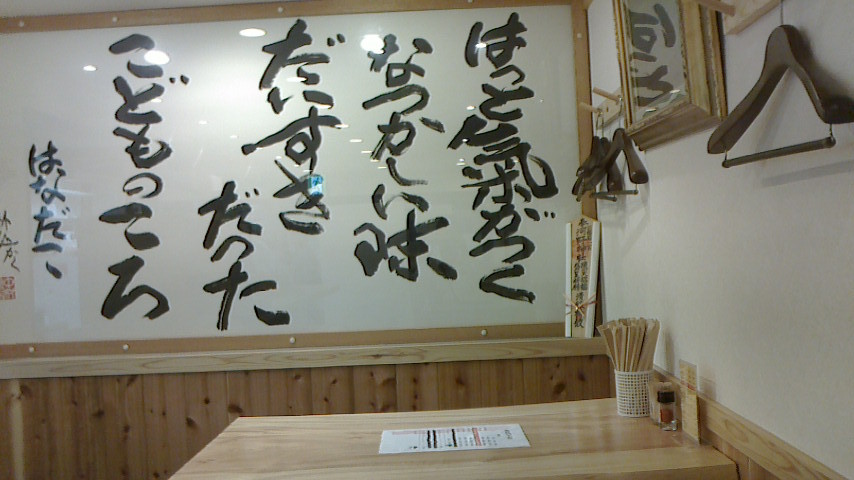 はっと氣がつく
なつかしい味
だいすき
だった
こどものころ
はなだこ